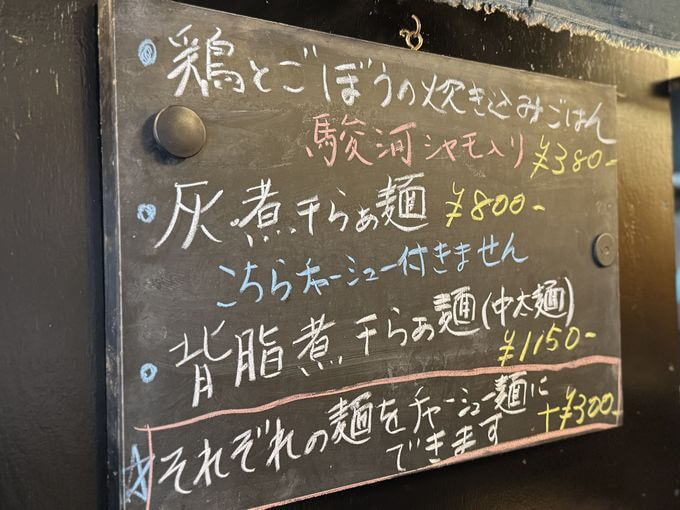 ・鶏とごぼうの炊き込みごはん
駿河シャモ入り ¥380-
・灰煮干らぁ麺 ¥800-
こちらチャーシュー付きません
・背脂煮干らぁ麺(中太麺)
¥1150-
☆それぞれの麺をチャーシュー麺に
できます +¥300-